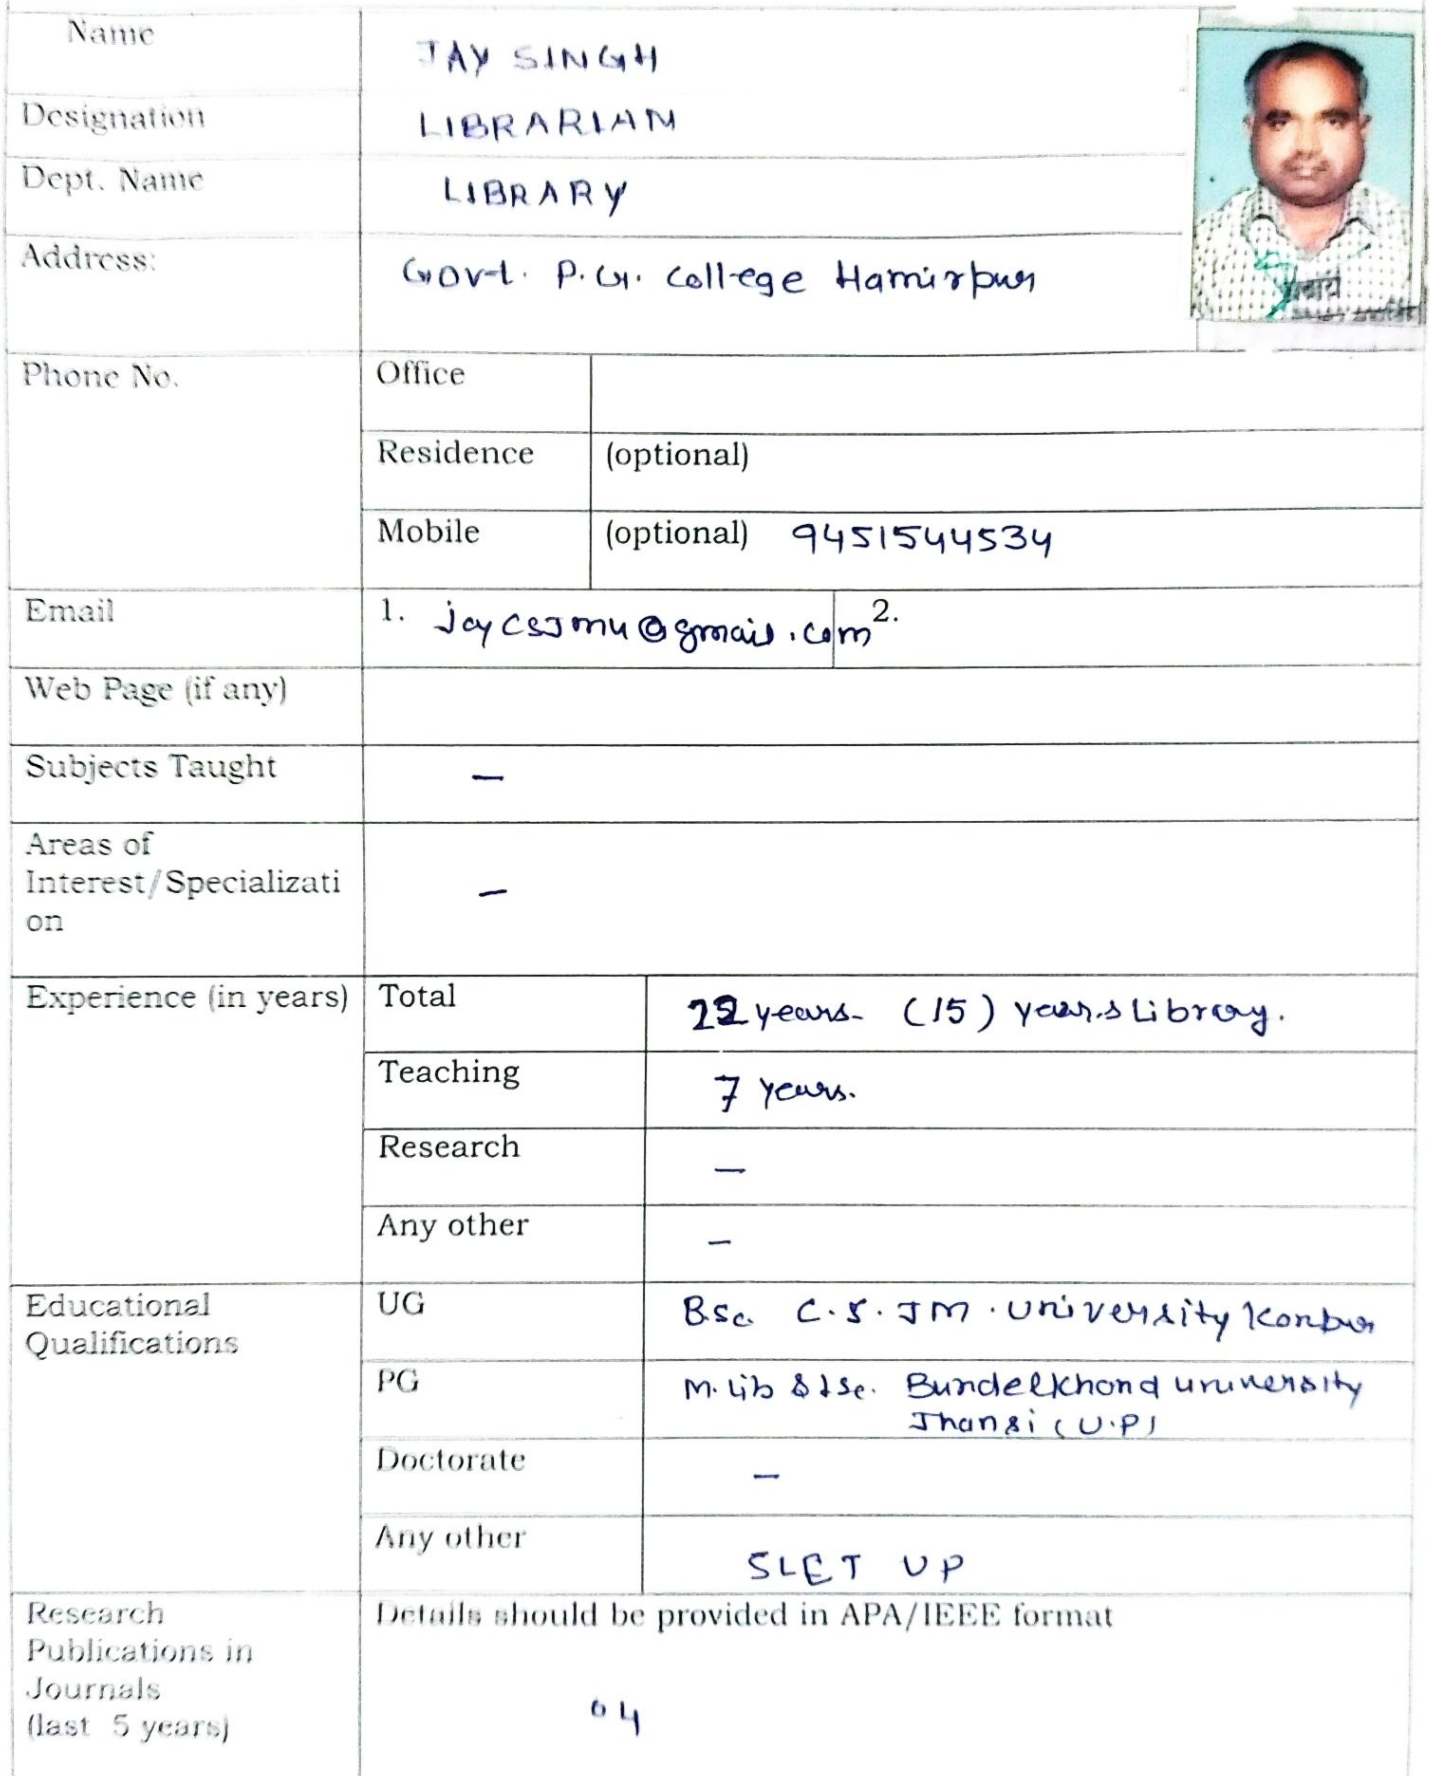 Name JAY SINGH
Designation LIBRARIAN
Dept. Name LIBRARY
Address: Govt. P.G. College Hamirpur
Phone No. Office
Residence (optional)
Mobile (optional) 9451544534
Email 1. jaycsjmu@gmail.com 2.
Web Page (if any)
Subjects Taught –
Areas of
Interest/Specializati –
on
Experience (in years) Total 22 years- (15) years Library.
Teaching 7 years.
Research –
Any other –
Educational UG B.sc. C.S.JM. University Kanpur
Qualifications
PG M. Lib & ISc. Bundelkhand University
Jhansi (U.P)
Doctorate –
Any other SLET UP
Research Details should be provided in APA/IEEE format
Publications in
Journals
(last 5 years) 04